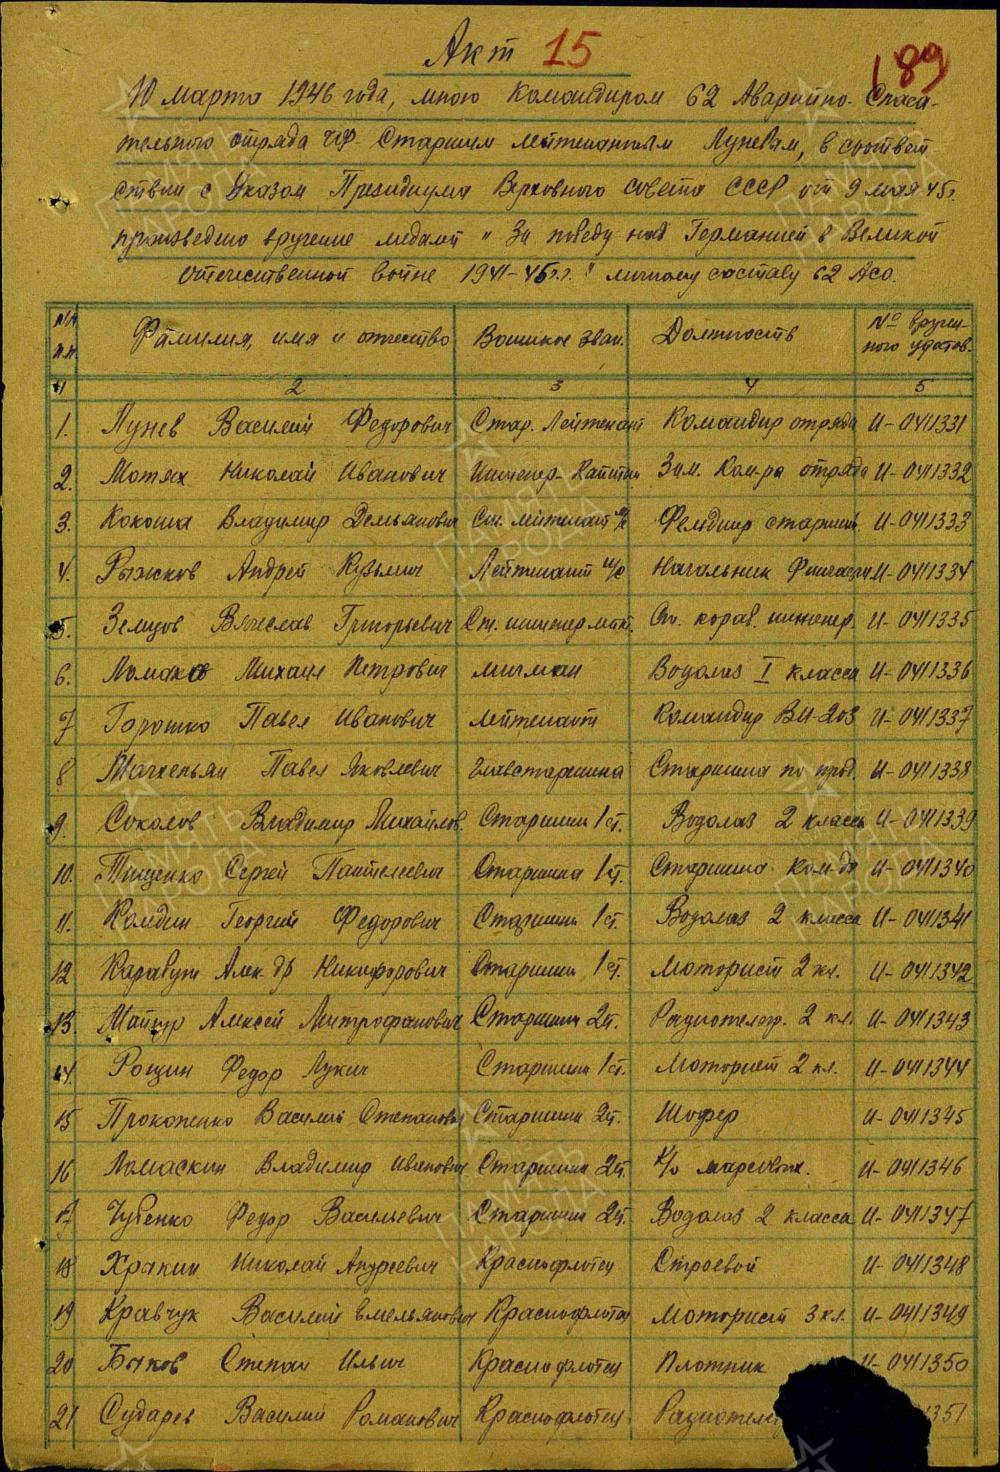 Акт 15
189
10 марта 1946 года, мною Командиром 62 Аварийно-Спаса-
тельного отряда ЧФ Старшим лейтенантом Луневым, в соответ-
ствии с Указом Президиума Верховного совета СССР от 9 мая 45г.
произведено вручение медалей "За победу над Германией в Великой
отечественной войне 1941-45г.г." личному составу 62 Асо.
№№ п.п. Фамилия, имя и отчество Воинское зван. Должность № вручен-ного удостов.
1 2 3 4 5
1. Лунев Василий Федорович Стар. Лейтенант Командир отряда И-0411331
2. Мотях Николай Иванович Инженер-Капитан Зам. Ком-ра отряда И-0411332
3. Кокоша Владимир Демьянович Ст. лейтенант м/с Фельдшер старший И-0411333
4. Рыжков Андрей Кузьмич Лейтенант и/с Начальник И-0411334
5. Земцов Вячеслав Григорьевич Ст. инженер лейт. Ст. кораб. инженер. И-0411335
6. Михаил Петрович мичман Водолаз I класса И-0411336
7 Горошко Павел Иванович лейтенант Командир ВМ-203 И-0411337
8 Павел Яковлевич Главстаршина Старшина по прод. И-0411338
9. Соколов Владимир Михайлов. Старшина 1 ст. Водолаз 2 класса И-0411339
10. Тищенко Сергей Пантелеевич Старшина 1 ст. Старшина ком-ды И-0411340
11. Георгий Федорович Старшина 1 ст. Водолаз 2 класса И-0411341
12 Алек-др Никифорович Старшина 1 ст. Моторист 2 кл. И-0411342
13. Алексей Митрофанович Старшина 2 ст. Радиотелегр. 2 кл. И-0411343
14. Рощин Федор Лукич Старшина 1 ст. Моторист 2 кл. И-0411344
15 Прокопенко Василий Степанович Старшина 2 ст. Шофер И-0411345
16 Ломаскин Владимир Иванович Старшина 2 ст. К/о И-0411346
17 Чубенко Федор Васильевич Старшина 2 ст. Водолаз 2 класса И-0411347
18 Хракин Николай Андреевич Краснофлотец Строевой И-0411348
19 Кравчук Василий Емельянович Краснофлотец Моторист 3 кл. И-0411349
20 Быков Степан Ильич Краснофлотец Плотник И-0411350
21 Сударев Василий Романович Краснофлотец Радиотелег 351